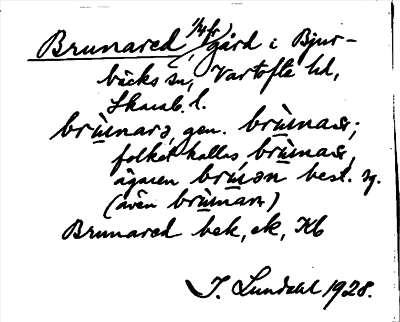 Brunared, 1/4 (fr) gård i Bjur-
bäcks sn, Vartofta hd,
Skarab. l.
brùnarə, gen. brùnas;
folket kallas brùnas,
ägaren brúnən best. sg.
(även brùnarn)
Brunared bek, ek, Kb
I. Lundahl 1928.